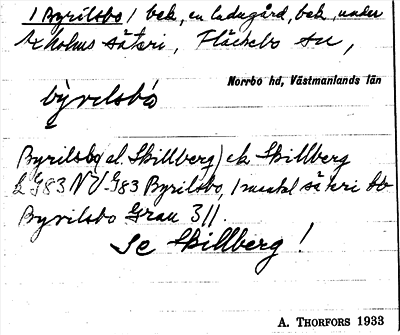 / Byrilsbo / bek, en ladugård, bek, under
Ekholms säteri, Fläckebo sn,
Norrbo hd, Västmanlands län
byrilsbo
Byrilsbo (el. Skillberg) ek Skillberg
G83 NV G83 Byrilsbo, 1 mantal säteri
Byrilsbo Grau 311.
Se Skillberg!
A. THORFORS 1933